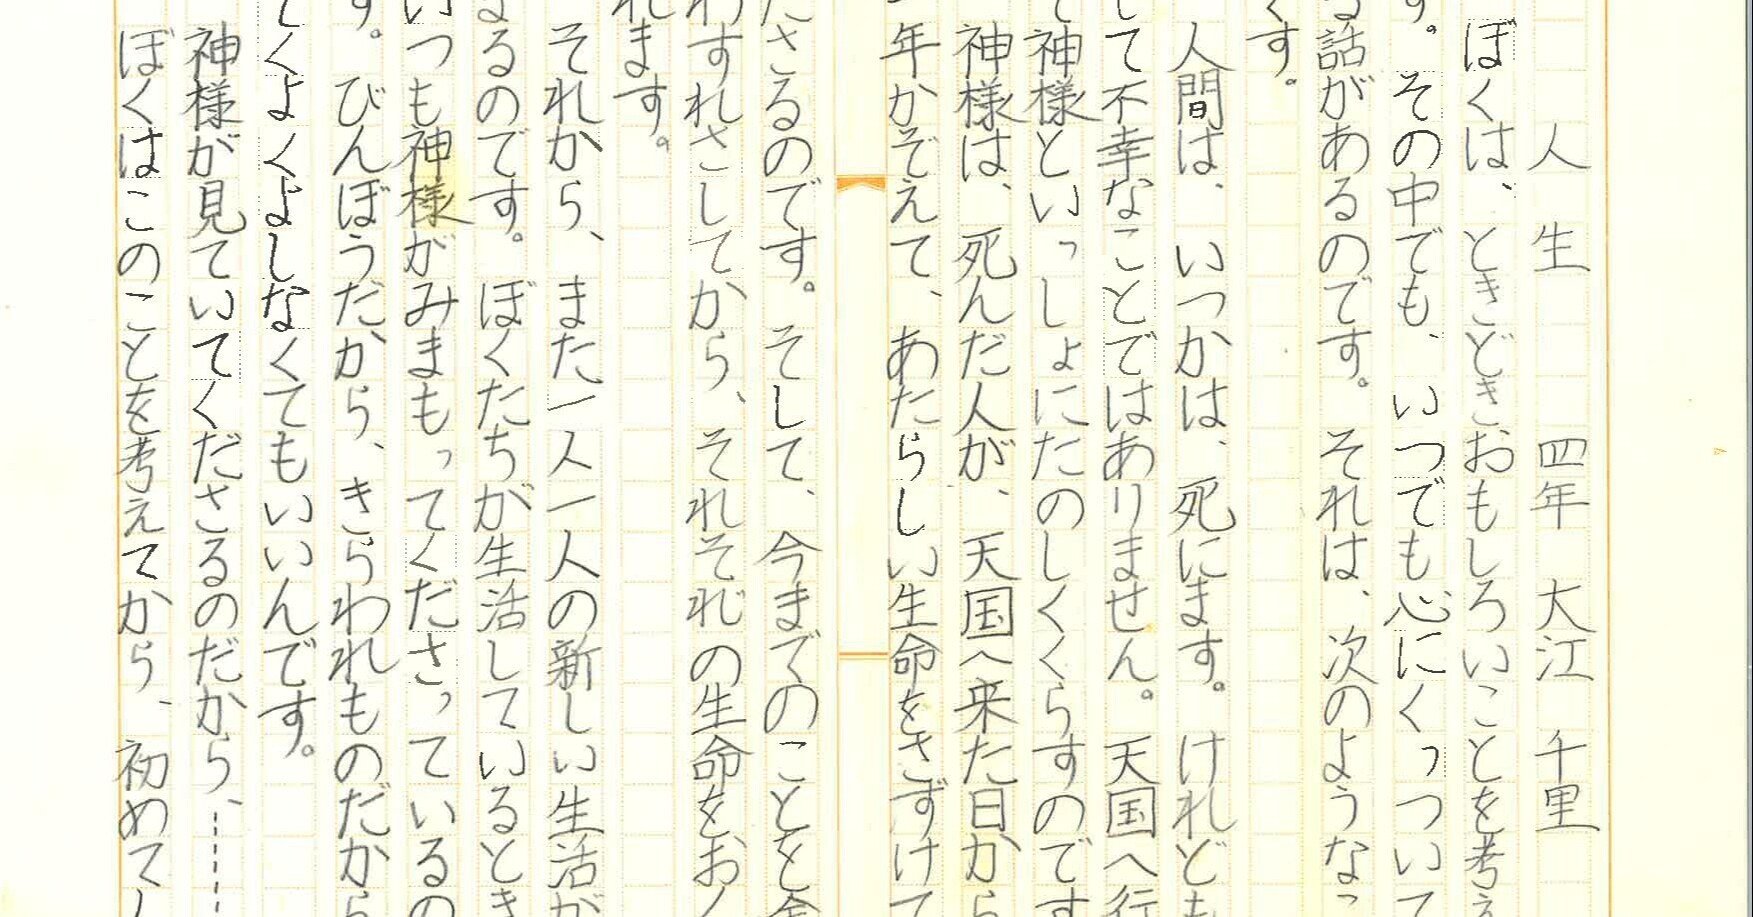 人生　四年　大江　千里
ぼくは、ときどきおもしろいことを考え
す。その中でも、いつでも心にくっついて
る話があるのです。それは、次のような
す。
人間は、いつかは、死にます。けれども
して不幸なことではありません。天国へ行
て神様といっしょにたのしくくらすのです
神様は、死んだ人が、天国へ来た日から
一年かぞえて、あたらしい生命をさずけて
ださるのです。そして、今までのことを全
わすれさしてから、それぞれの生命をおく
れます。
それから、また一人一人の新しい生活が
まるのです。ぼくたちが生活しているとき
いつも神様がみまもってくださっているの
す。びんぼうだから、きらわれものだから
てくよくよしなくてもいいんです。
神様が見ていてくださるのだから、……
ぼくはこのことを考えてから、初めて